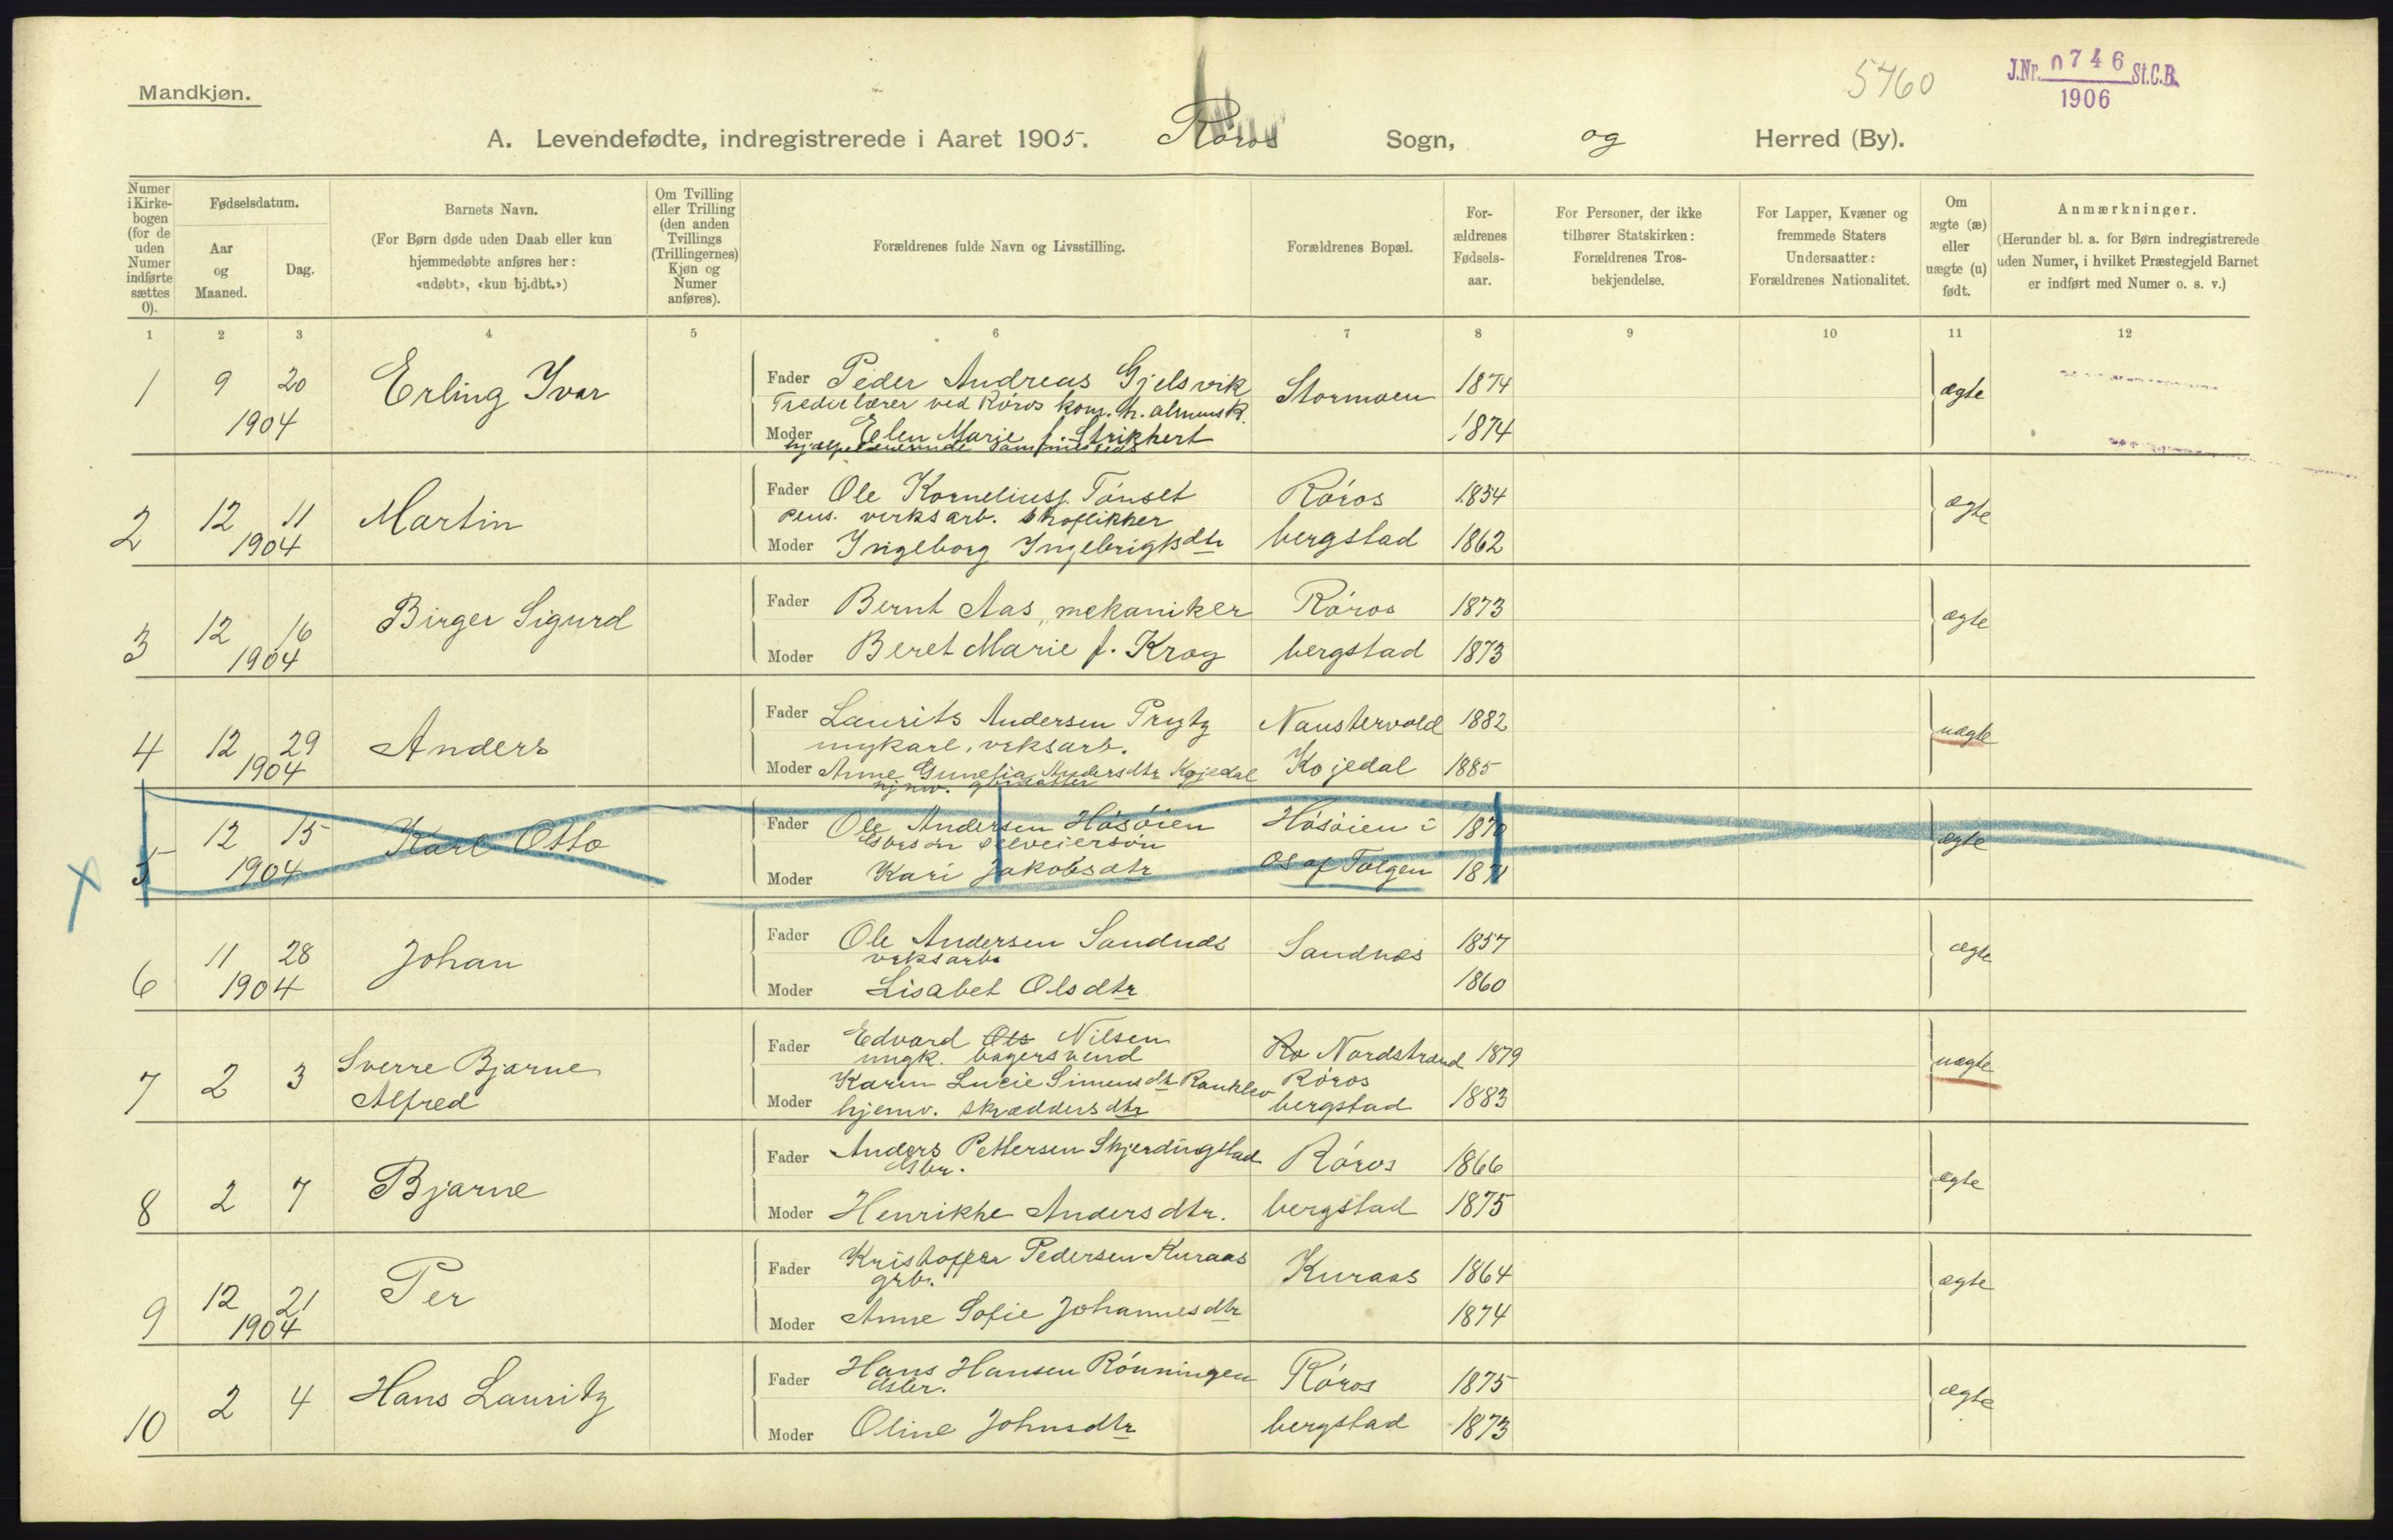 Mandkjøn.
5760
J.Nr. 0746 St.C.B.
1906
A. Levendefødte, indregistrerede i Aaret 1905. Røros Sogn, og Herred (By).
Numer i Kirkebogen (for de uden Numer indførte sættes 0).
Fødselsdatum.
Aar og Maaned.
Dag.
Barnets Navn.
(For Børn døde uden Daab eller kun hjemmedøbte anføres her: «udøbt», «kun hj.dbt.»)
Om Tvilling eller Trilling (den anden Tvillings (Trillingernes) Kjøn og Numer anføres).
Forældrenes fulde Navn og Livsstilling.
Forældrenes Bopæl.
Forældrenes Fødselsaar.
For Personer, der ikke tilhører Statskirken: Forældrenes Trosbekjendelse.
For Lapper, Kvæner og fremmede Staters Undersaatter: Forældrenes Nationalitet.
Om ægte (æ) eller uægte (u) født.
Anmærkninger.
(Herunder bl. a. for Børn indregistrerede uden Numer, i hvilket Præstegjeld Barnet er indført med Numer o. s. v.)
1 2 3 4 5 6 7 8 9 10 11 12
1 9 20 Erling Ivar Fader Peder Andreas Gjelsvik Stormoen 1874 ægte
1904 Tredielærer ved Røros kom. h. almuesk.
Moder Elen Marie f. Strikkert 1874
hjælpelærerinde sammesteds
2 12 11 Martin Fader Ole Korneliuss. Tønset Røros 1834 ægte
1904 pens. verksarb. skoflikker
Moder Ingeborg Ingebrigtsdtr bergstad 1862
3 12 16 Birger Sigurd Fader Bernt Aas, mekaniker Røros 1873 ægte
1904 Moder Beret Marie f. Krog bergstad 1873
4 12 29 Anders Fader Laurits Andersen Prytz Naustervold 1882 uægte
1904 ungkarl, verksarb.
Moder Anne Gunelia Andersdtr Kojedal Kojedal 1885
hjmv. gbrdatter
5 12 15 Karl Otto Fader Ole Andersen Høsøien Høsøien i ægte
1904 selveiersøn
Moder Kari Jakobsdtr Os af Tolgen
6 11 28 Johan Fader Ole Andersen Sandnes Sandnæs 1857 ægte
1904 verksarb.
Moder Lisabet Olsdtr 1860
7 2 3 Sverre Bjarne Alfred Fader Edvard Ols Nilsen Ro Nordstrand 1879 uægte
ungk. bagersvend
Karen Lucie Simensdtr Ranklev Røros
Moder hjemv. skræddersdtr bergstad 1883
8 2 7 Bjarne Fader Anders Pettersen Skjerdingstad Røros 1866 ægte
Moder Henrikke Andersdtr. bergstad 1875
9 12 21 Per Fader Kristoffer Pedersen Kuraas Kuraas 1864 ægte
1904 grb.
Moder Anne Sofie Johannesdtr 1874
10 2 4 Hans Lauritz Fader Hans Hansen Rønningen Røros 1875 ægte
Moder Oline Johnsdtr bergstad 1873